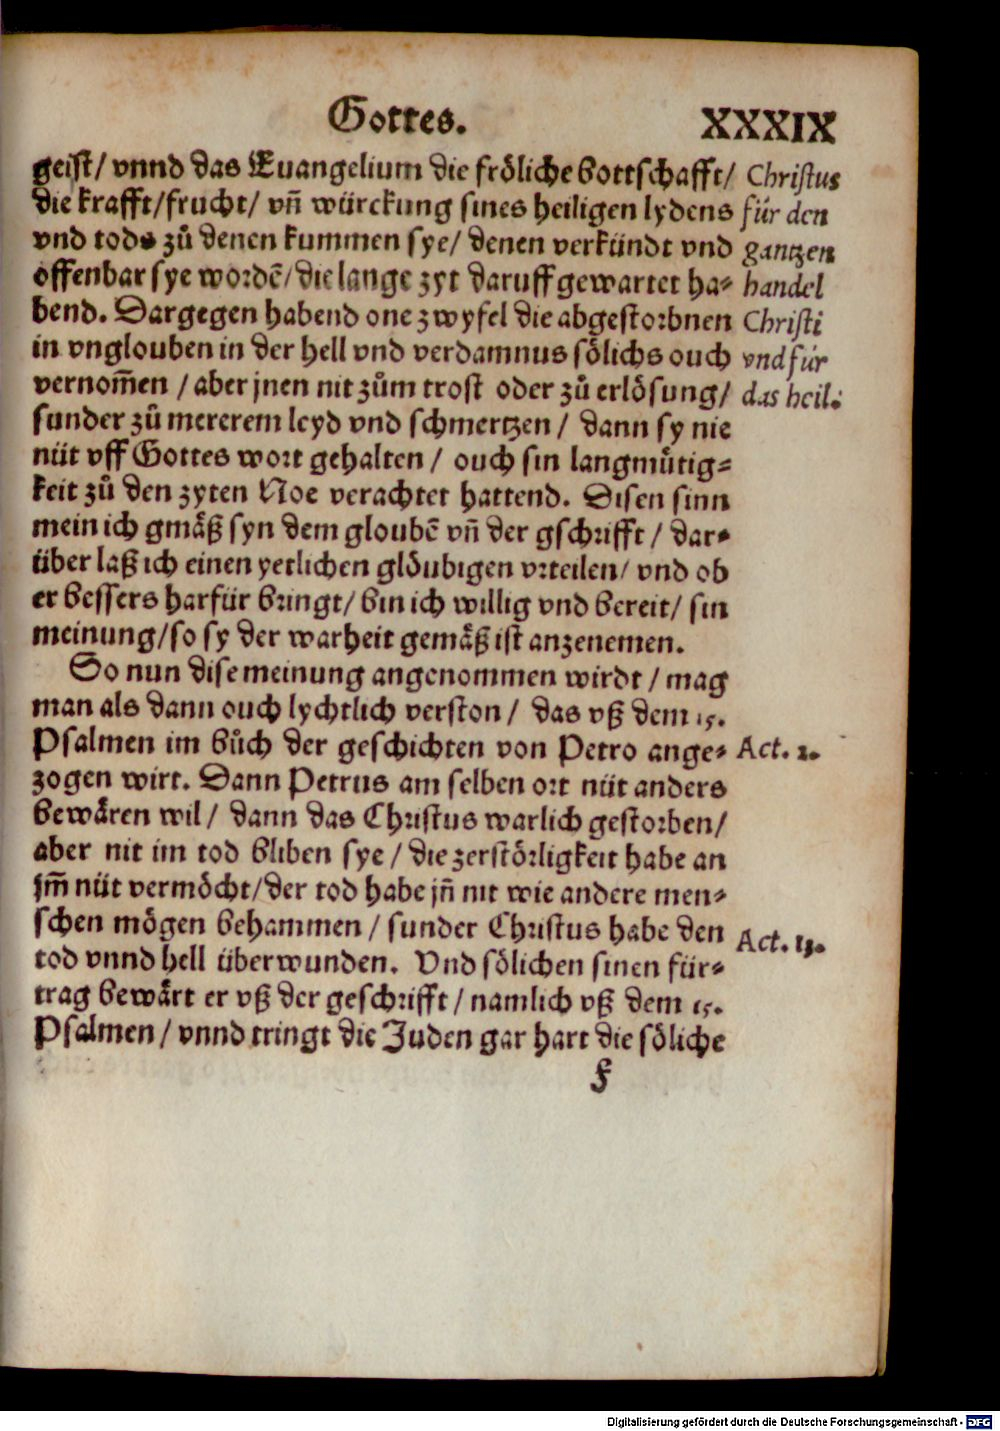 Gottes. XXXIX
geist/ vnnd das Euangelium die fröliche bottschafft/
die krafft/frucht/ vñ würckung sines heiligen lydens
vnd tods zů denen kummen sye/ denen verkündt vnd
offenbar sye wordẽ/die lange zyt daruff gewartet ha⸗
bend. Dargegen habend one zwyfel die abgestorbnen
in vnglouben in der hell vnd verdamnus sölichs ouch
vernom̃en / aber jnen nit zům trost oder zů erlösung/
sunder zů mererem leyd vnd schmertzen / dann sy nie
nüt vff Gottes wort gehalten / ouch sin langmůtig⸗
keit zů den zyten Noe verachtet hattend. Disen sinn
mein ich gmäß syn dem gloubẽ vñ der gschrifft / dar⸗
über laß ich einen yetlichen glöubigen vrteilen/ vnd ob
er bessers harfür bringt/ bin ich willig vnd bereit/ sin
meinung/so sy der warheit gemäß ist anzenemen.
So nun dise meinung angenommen wirdt / mag
man als dann ouch lychtlich verston / das vß dem 15.
Psalmen im bůch der geschichten von Petro ange⸗
zogen wirt. Dann Petrus am selben ort nüt anders
bewären wil/ dann das Christus warlich gestorben/
aber nit im tod bliben sye / die zerstörligkeit habe an
jm̃ nüt vermöcht/der tod habe jñ nit wie andere men⸗
schen mögen behammen / sunder Christus habe den
tod vnnd hell überwunden. Vnd sölichen sinen für⸗
trag bewärt er vß der geschrifft / namlich vß dem 15.
Psalmen / vnnd tringt die Juden gar hart die söliche
f
Christus
für den
gantzen
handel
Christi
vnd für
das heil.
Act. 2.
Act. 13.
Digitalisierung gefördert durch die Deutsche Forschungsgemeinschaft - DFG